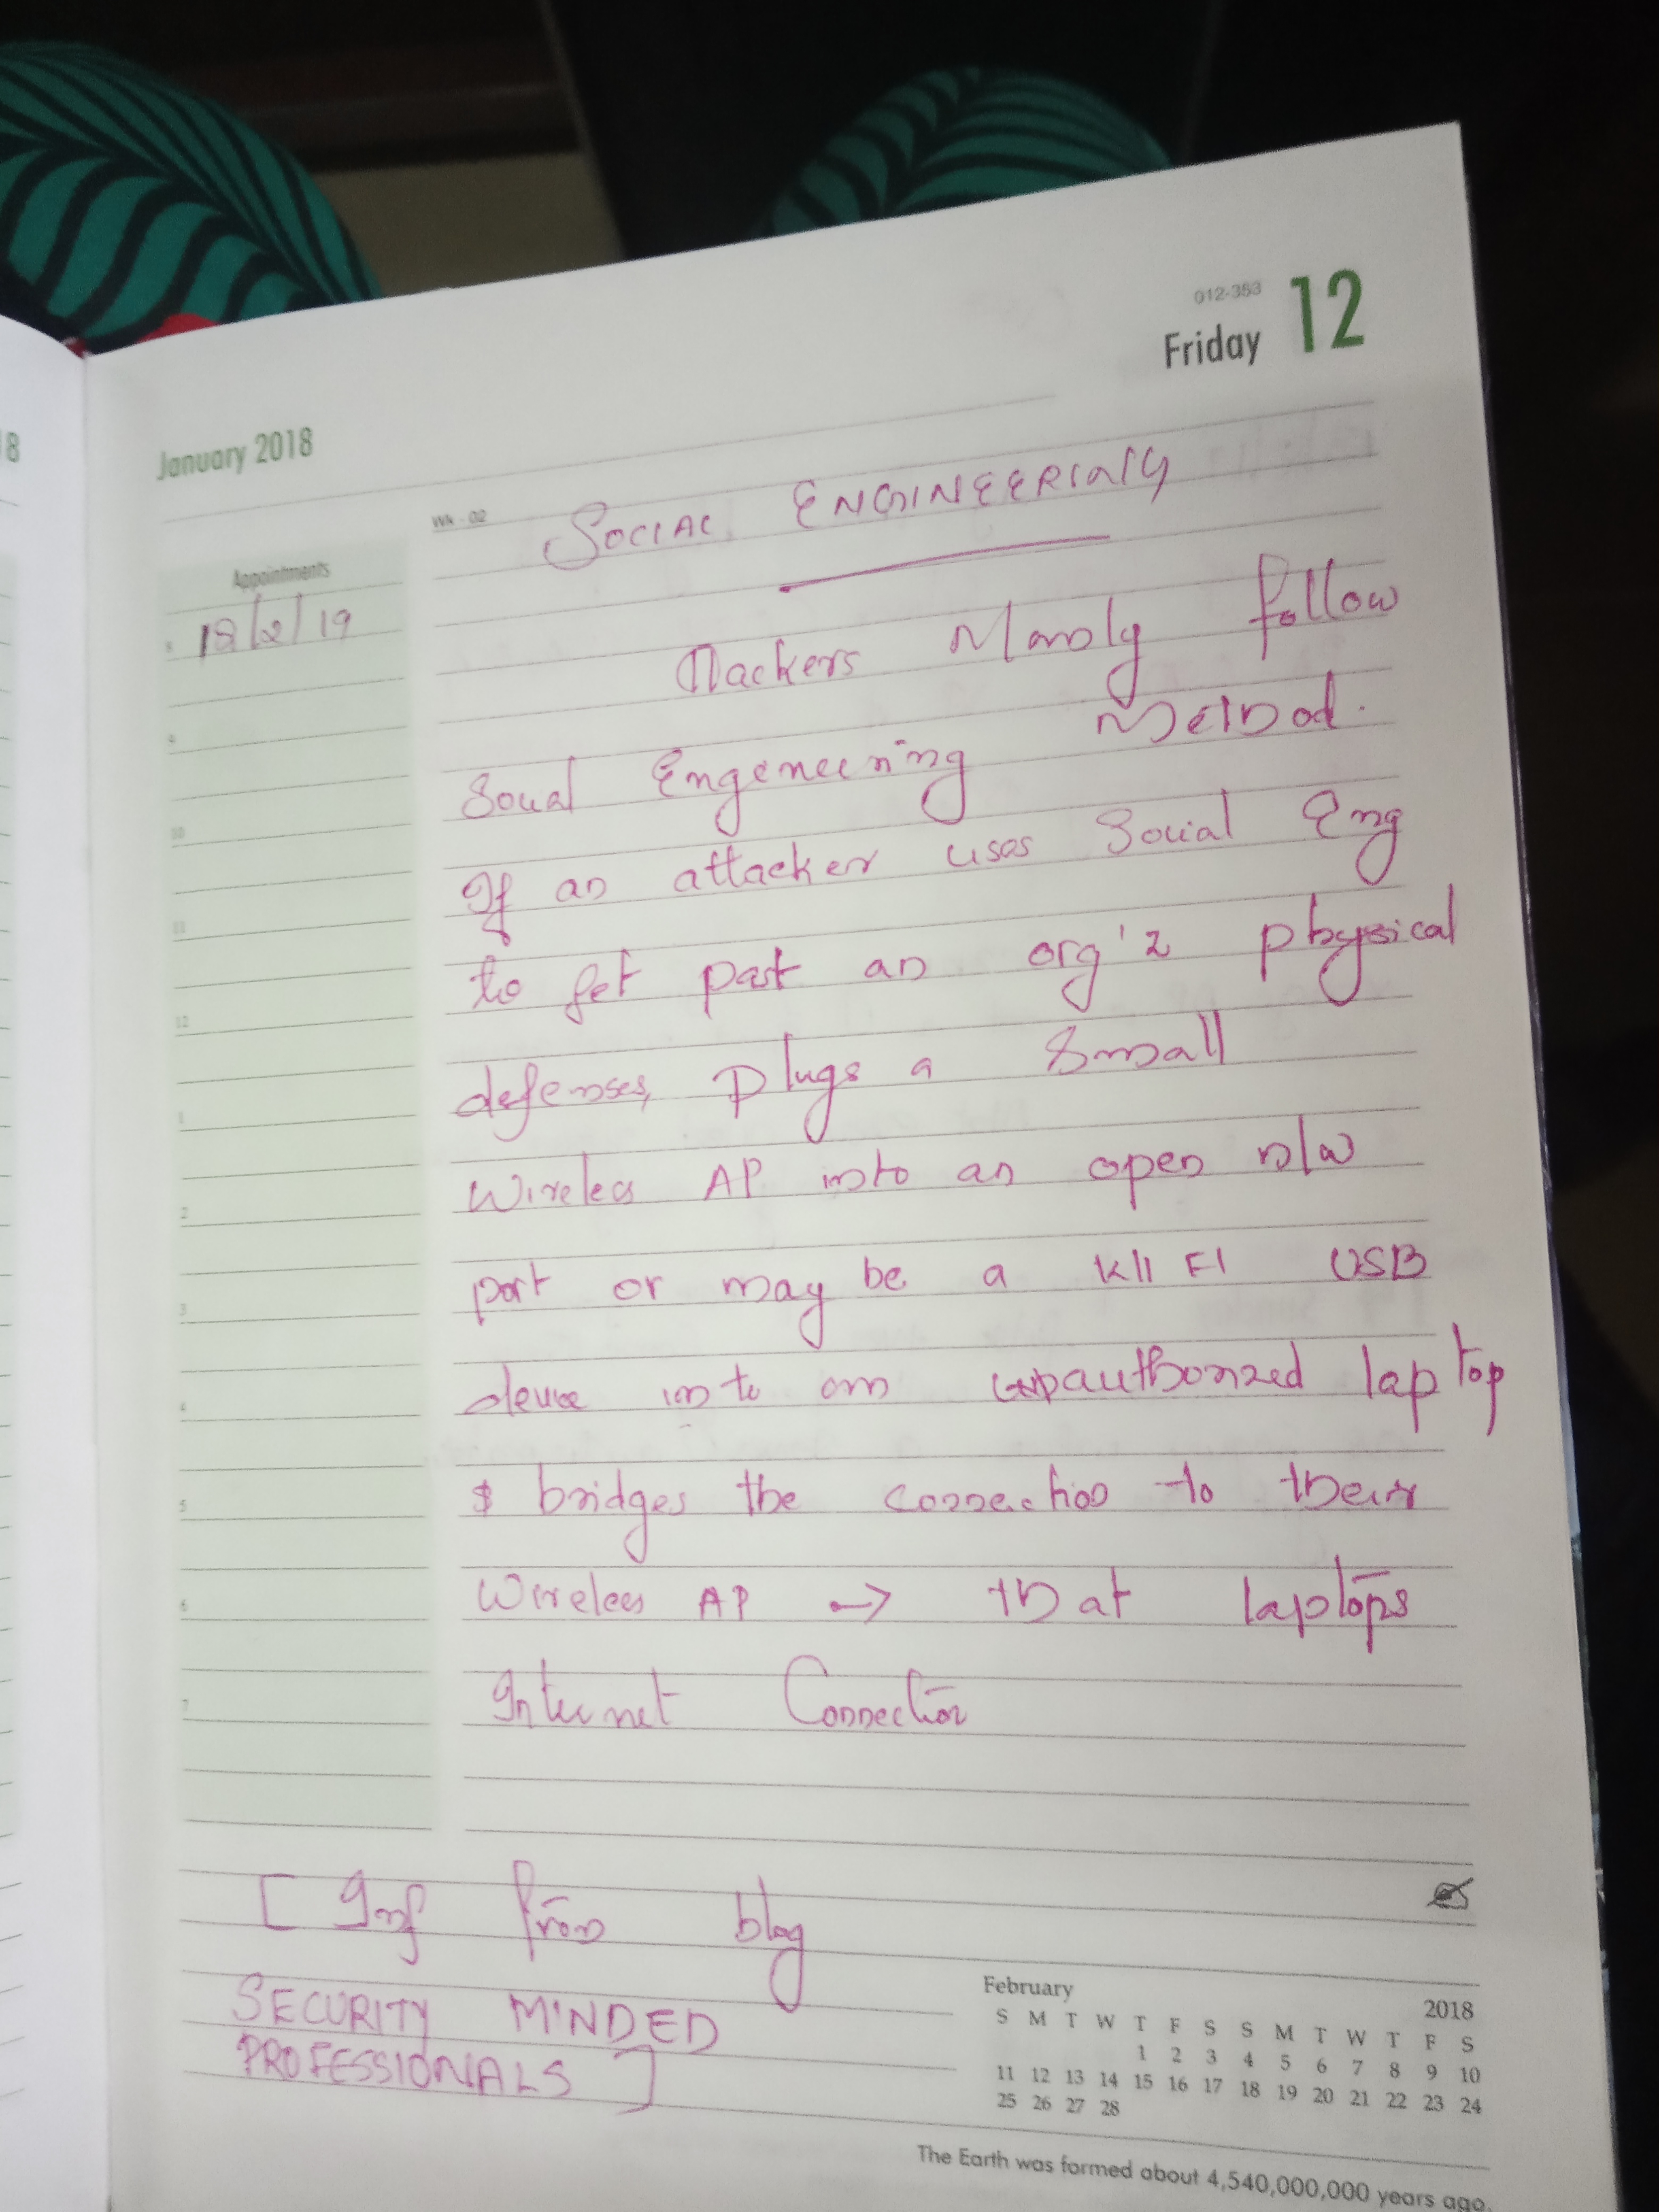 8
012-353
Friday 12
January 2018
Wk - 02
SOCIAL ENGINEERING
Appointments
18/2/19
Hackers Manoly follow
Soual Engeneering Method.
If an attacker uses Social Eng
to get past an org'z physical
defenses, plugs a small
Wireless AP into an open n/w
port or may be a KII FI USB
device into an unauthorized laptop
& bridges the connection to their
Wireless AP → that laptops
Internet Connection
8
9
10
11
12
1
2
3
4
5
6
7
[ Inf from blog
SECURITY MINDED
PROFESSIONALS ]
February 2018
S M T W T F S S M T W T F S
1 2 3 4 5 6 7 8 9 10
11 12 13 14 15 16 17 18 19 20 21 22 23 24
25 26 27 28
The Earth was formed about 4,540,000,000 years ago.